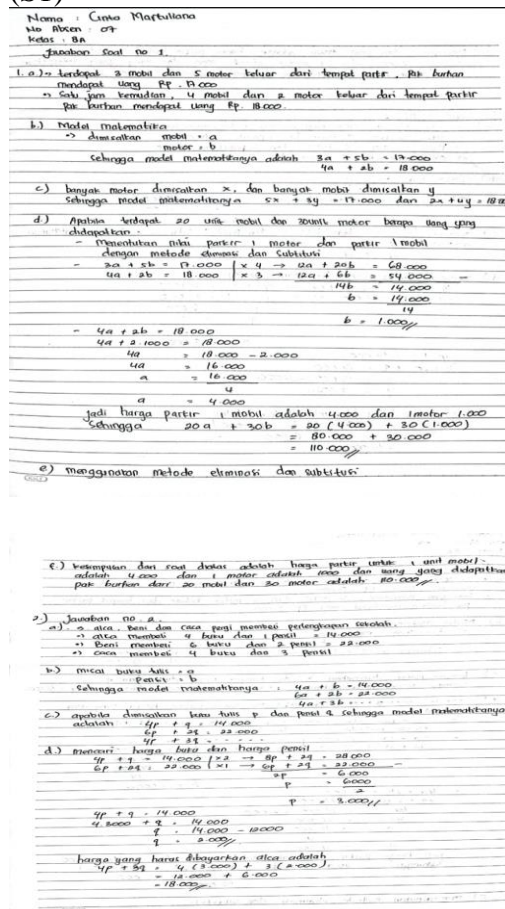 Nama : Cinta Martuliana
No Absen : 07
Kelas : 8A
Jawaban Soal no 1.
1. a) → terdapat 3 mobil dan 5 motor keluar dari tempat parkir. Pak burhan
mendapat uang Rp. 17.000
→ Satu jam kemudian, 4 mobil dan 2 motor keluar dari tempat parkir
Pak burhan mendapat uang Rp. 18.000.
b.) Model matematika
→ dimisalkan mobil = a
motor = b
Sehingga model matematikanya adalah 3a + 5b = 17.000
4a + 2b = 18.000
c) banyak motor dimisalkan x, dan banyak mobil dimisalkan y
Sehingga model matematikanya 5x + 3y = 17.000 dan 2x + 4y = 18.0
d.) Apabila terdapat 20 unit mobil dan 30 unit motor berapa uang yang
didapatkan.
- Menentukan nilai parkir 1 motor dan parkir 1 mobil
dengan metode eliminasi dan Subtitusi
- 3a + 5b = 17.000 | x 4 → 12a + 20b = 68.000
4a + 2b = 18.000 | x 3 → 12a + 6b = 54.000 -
14b = 14.000
b = 14.000
14
b = 1.000
- 4a + 2b = 18.000
4a + 2.1000 = 18.000
4a = 18.000 - 2.000
4a = 16.000
a = 16.000
4
a = 4.000
Jadi harga parkir 1 mobil adalah 4.000 dan 1 motor 1.000
Sehingga 20a + 30b = 20 (4.000) + 30 (1.000)
= 80.000 + 30.000
= 110.000
e) menggunakan metode eliminasi dan subtitusi
f.) kesimpulan dari soal diatas adalah harga parkir untuk 1 unit mobil
adalah 4.000 dan 1 motor adalah 1000 dan uang yang didapatkan
pak burhan dari 20 mobil dan 30 motor adalah 110.000
2.) Jawaban no. 2.
a). → alca, Beni dan caca pergi membeli perlengkapan sekolah.
→ alca membeli 4 buku dan 1 pensil = 14.000
→ Beni membeli 6 buku dan 2 pensil = 22.000
→ caca membeli 4 buku dan 3 pensil
b.) misal buku tulis = a
Pensil = b
Sehingga model matematikanya : 4a + b = 14.000
6a + 2b = 22.000
4a + 3b = ....
c.) apabila dimisalkan buku tulis p dan pensil q sehingga model matematikanya
adalah : 4p + q = 14.000
6p + 2q = 22.000
4p + 3q = ....
d.) mencari harga buku dan harga pensil
4p + q = 14.000 | x 2 → 8p + 2q = 28.000
6p + 2q = 22.000 | x 1 → 6p + 2q = 22.000 -
2p = 6.000
p = 6000
2
p = 3.000
4p + q = 14.000
4.3000 + q = 14.000
q = 14.000 - 12000
q = 2.000
harga yang harus dibayarkan alca adalah
4p + 3q = 4 (3.000) + 3 (2.000)
= 12.000 + 6.000
= 18.000